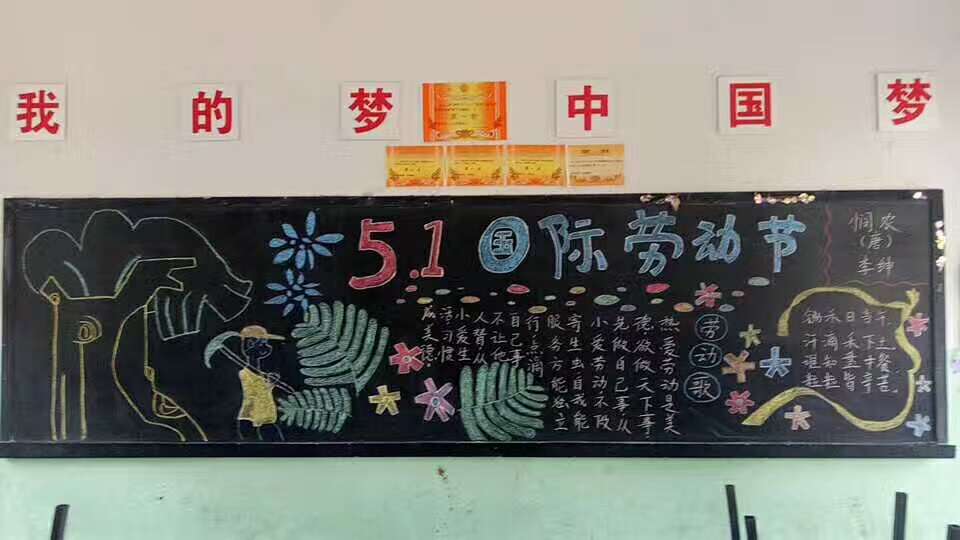 我的梦 中国梦
5.1 国际劳动节
悯农
(唐)
李绅
锄禾日当午
汗滴禾下土
谁知盘中餐
粒粒皆辛苦
劳动歌
热爱劳动是美
德,欲做天下事,
先做自己事,从
小爱劳动不
寄生虫自我能
服务方能独立
行,点滴
自己事
不让他
人替从
小爱生
活习惯
成美德.